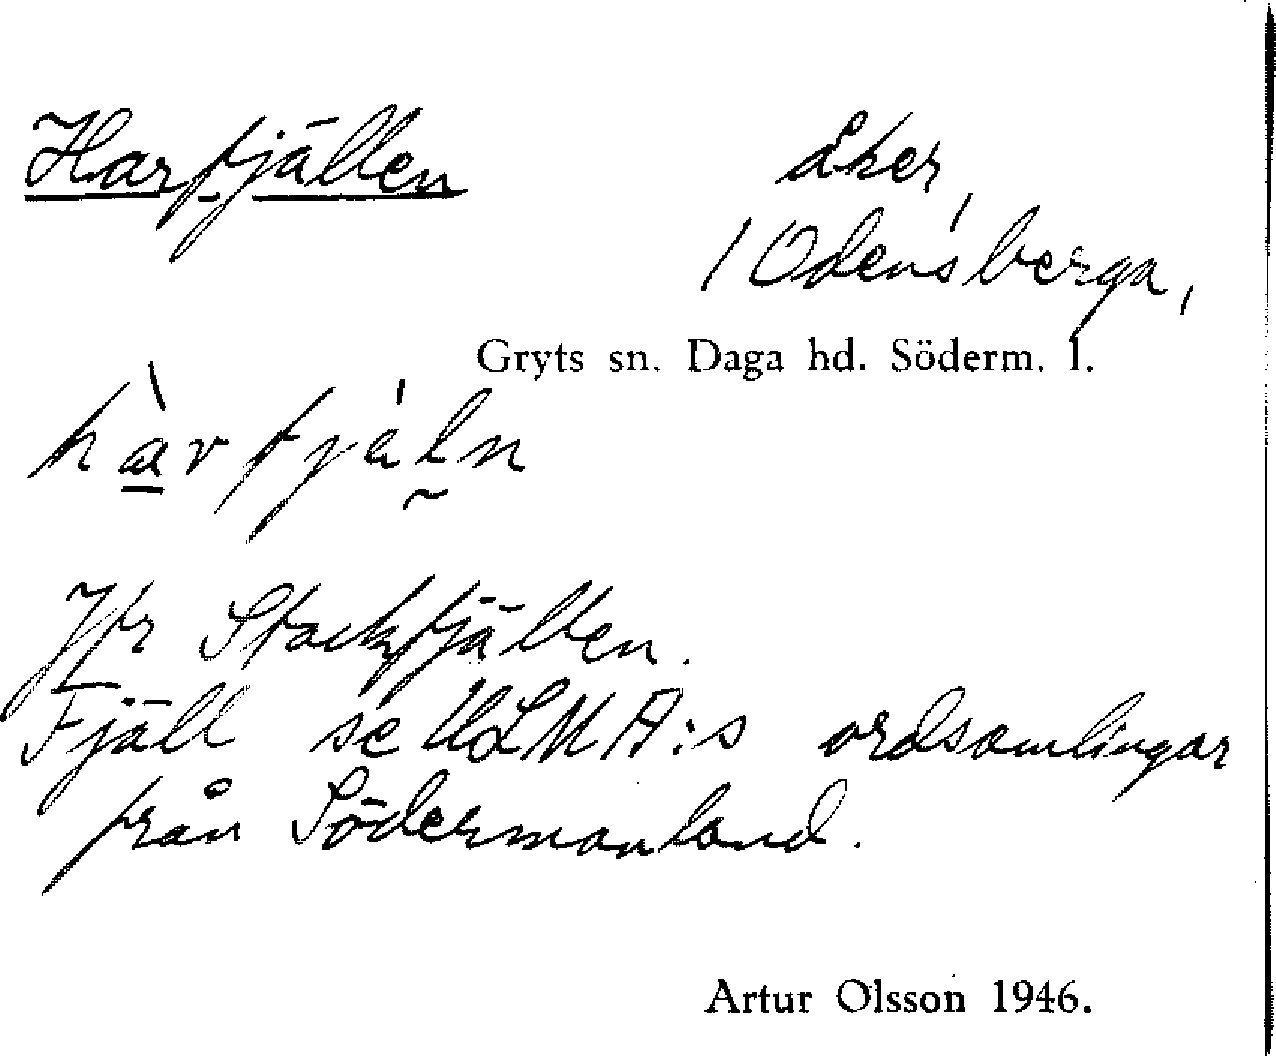 Harfjällen
åker,
/ Odensberga,
Gryts sn. Daga hd. Söderm. l.
hàrfjáln
Jfr Stockfjällen.
Fjäll se ULMA:s ordsamlingar
från Södermanland.
Artur Olsson 1946.